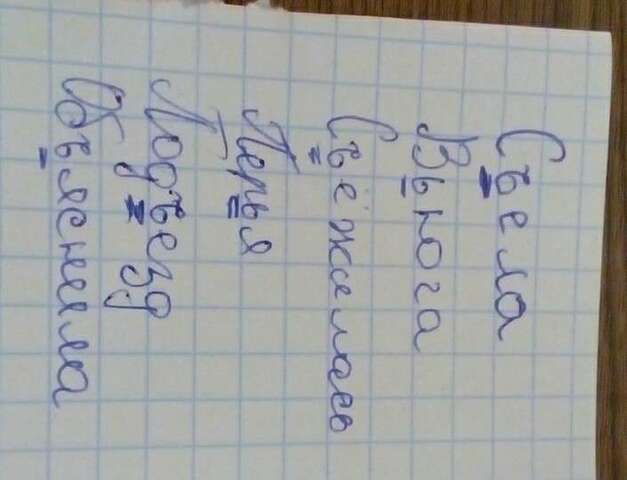 Съела
Вьюга
Съёжилась
Перья
Подъезд
Объяснила